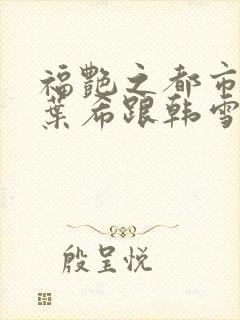 福艳之都市
葉希跟韩雪
殷呈悦